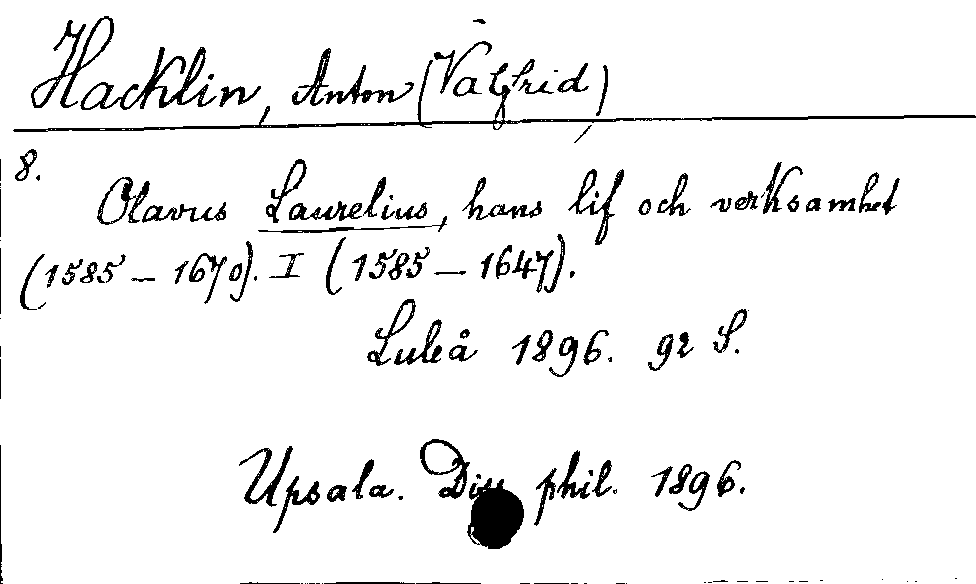 Hacklin, Anton (Valfrid)
8.
Olavus Laurelius, hans lif och verksamhet
(1585 – 1670). I (1585 – 1647).
Luleå 1896. 92 S.
Upsala. Diss phil. 1896.